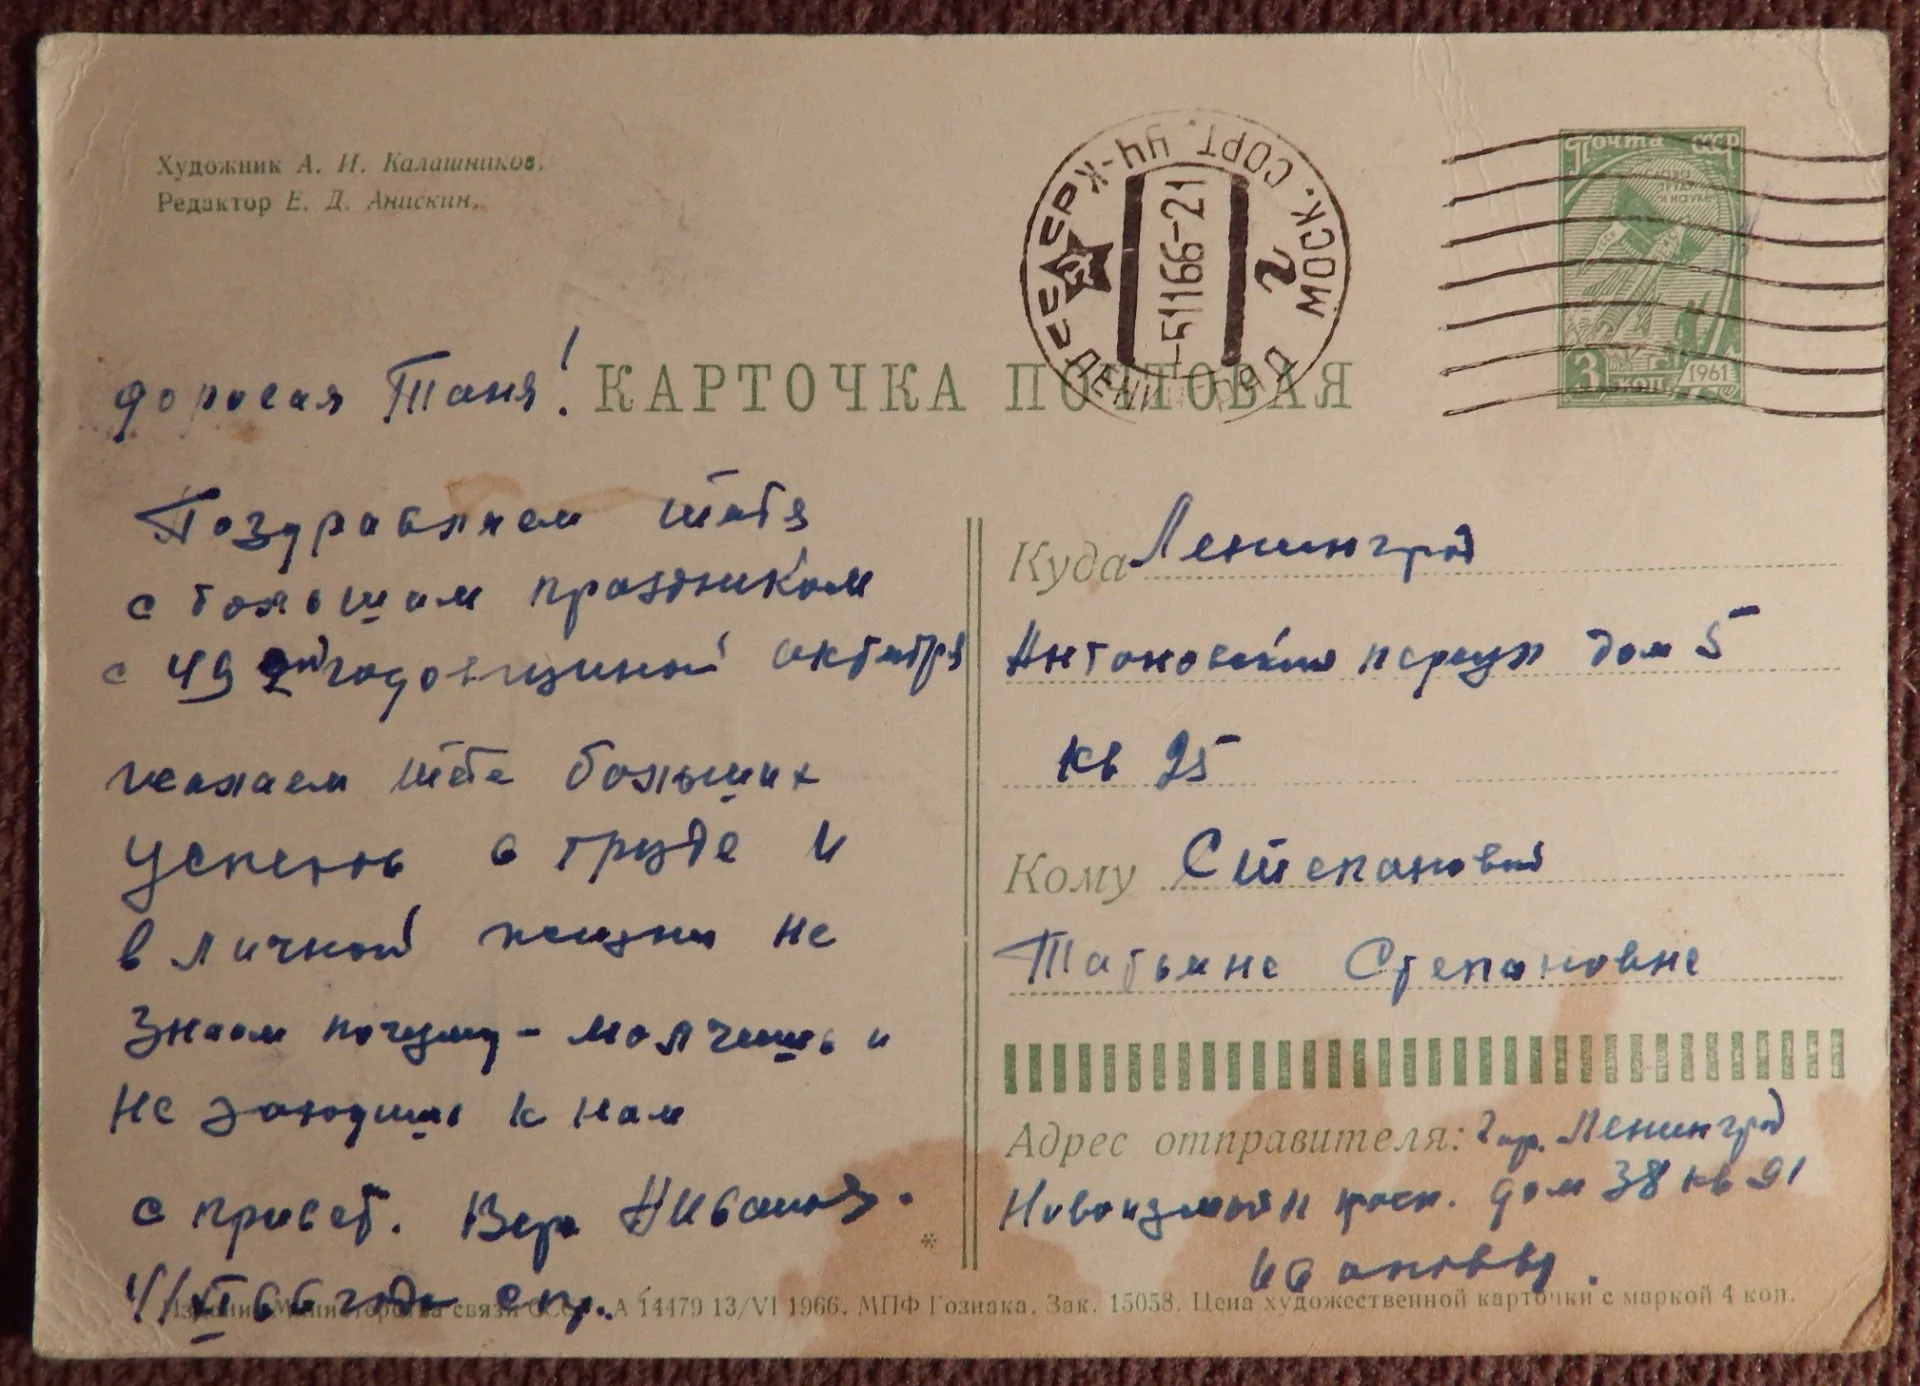 Художник А. И. Калашников.
Редактор Е. Д. Анискин.
Почта СССР
СЛАВА
ТРУДУ
И НАУКЕ
3 коп. 1961
ЛЕНИНГРАД
МОСК. СОРТ. УЧ-К
-51166-21
2
КАРТОЧКА ПОЧТОВАЯ
дорогая Таня!
Поздравляем тебя
с большим праздником
с 49 годовщиной октября
желаем тебе больших
успехов в труде и
в личной жизни не
знаем почему - молчишь и
не заходишь к нам
с привет. Вера Иванов.
4/XI 66 года
Куда Ленинград
Антоновский переул дом 5
кв 25
Кому Степановой
Татьяне Степановне
Адрес отправителя: гор. Ленинград
Новоизмайл просп. дом 38 кв 91
Ивановы.
Издание Министерства связи СССР. А 14479 13/VI 1966. МПФ Гознака. Зак. 15058. Цена художественной карточки с маркой 4 коп.